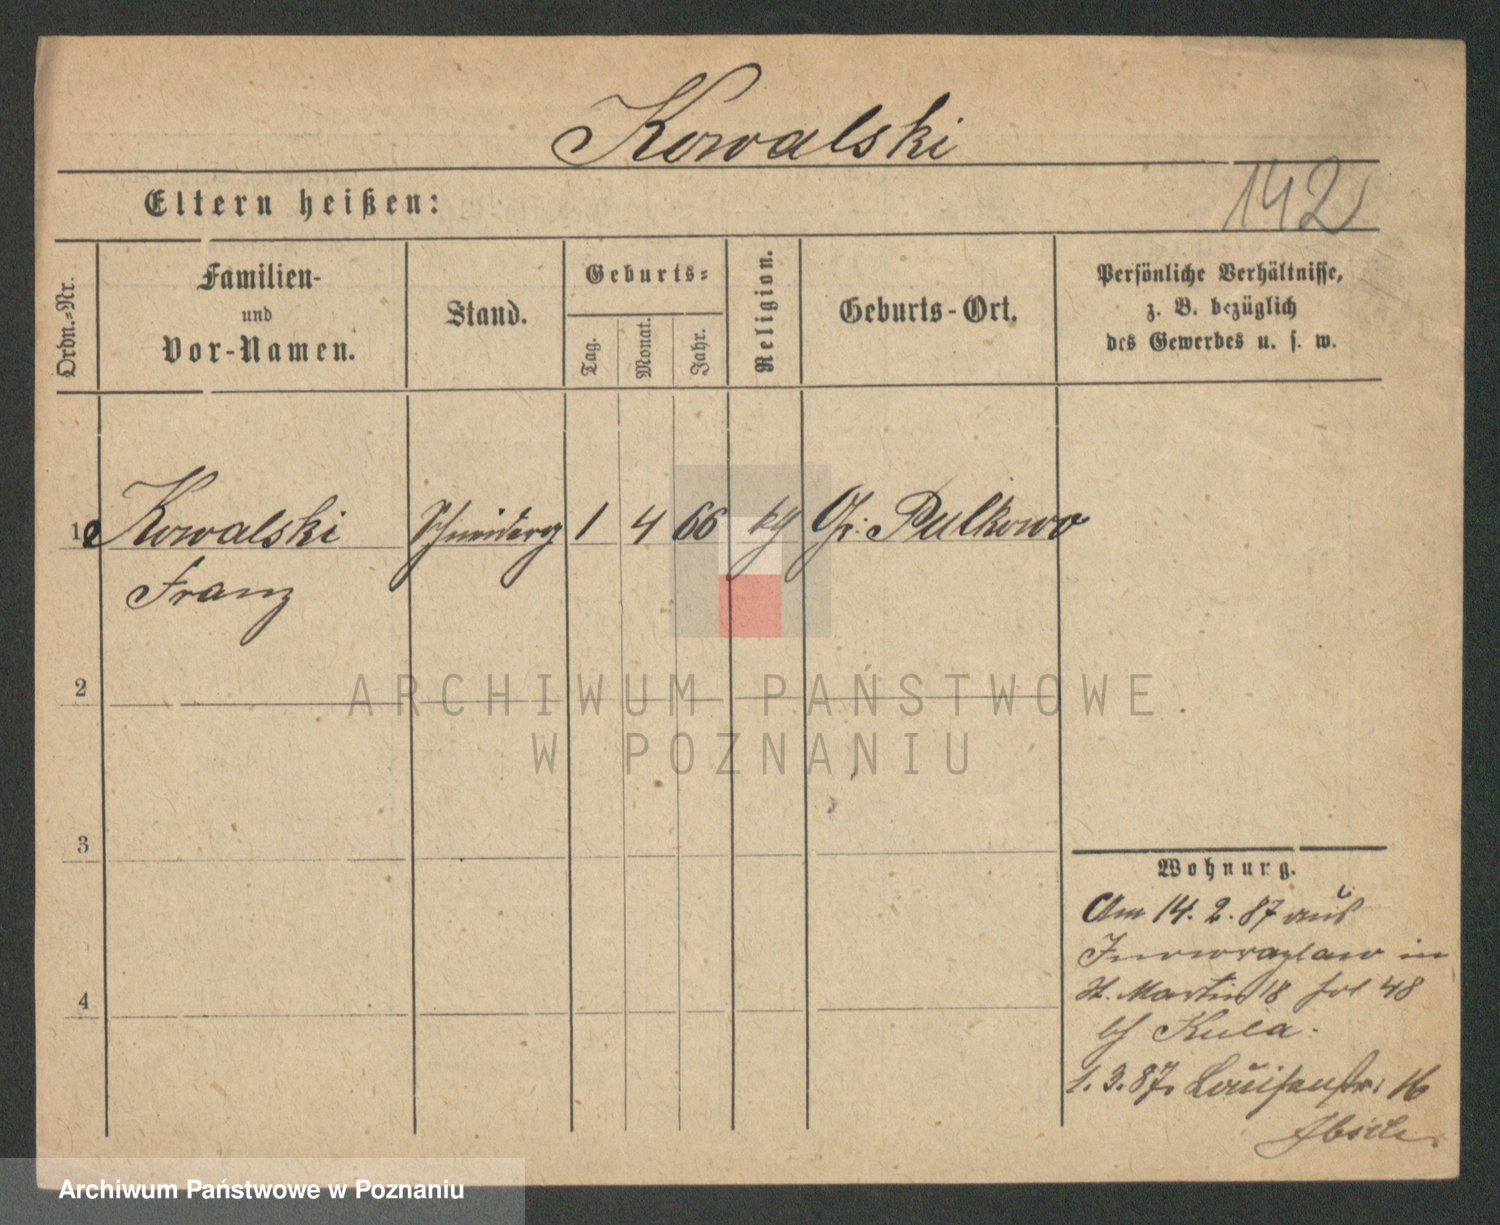 Kowalski
142
Eltern heißen:
Ordn.-Nr.
Familien-
und
Vor-Namen.
Stand.
Geburts-
Tag.
Monat.
Jahr.
Religion.
Geburts-Ort.
Persönliche Verhältnisse,
z. B. bezüglich
des Gewerbes u. s. w.
1 Kowalski 1 4 66 Gr: Pulkowo
Franz
2
3
4
ARCHIWUM PAŃSTWOWE
W POZNANIU
Wohnung.
Am 14. 2. 87 aus
Inowrazlaw in
St. Martin 18 48
Kula.
1. 3. 87. Louisenstr: 16
Archiwum Państwowe w Poznaniu